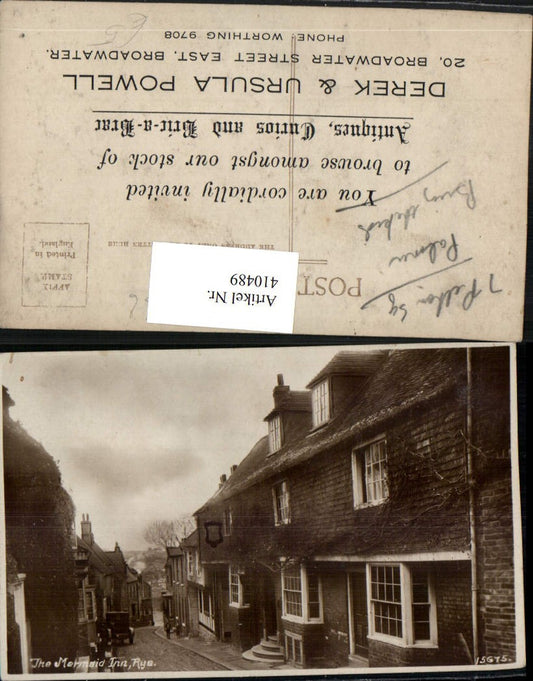 DEREK & URSULA POWELL
20, BROADWATER STREET EAST, BROADWATER.
PHONE: WORTHING 9708
You are cordially invited
to browse amongst our stock of
Antiques, Curios and Bric-a-Brac
POST
THE ADDRESS ONLY TO
ITTEN HERE
AFFIX
STAMP.
Printed in
England.
Artikel Nr.
410489
7
Sq
The Mermaid Inn, Rye.
15675.